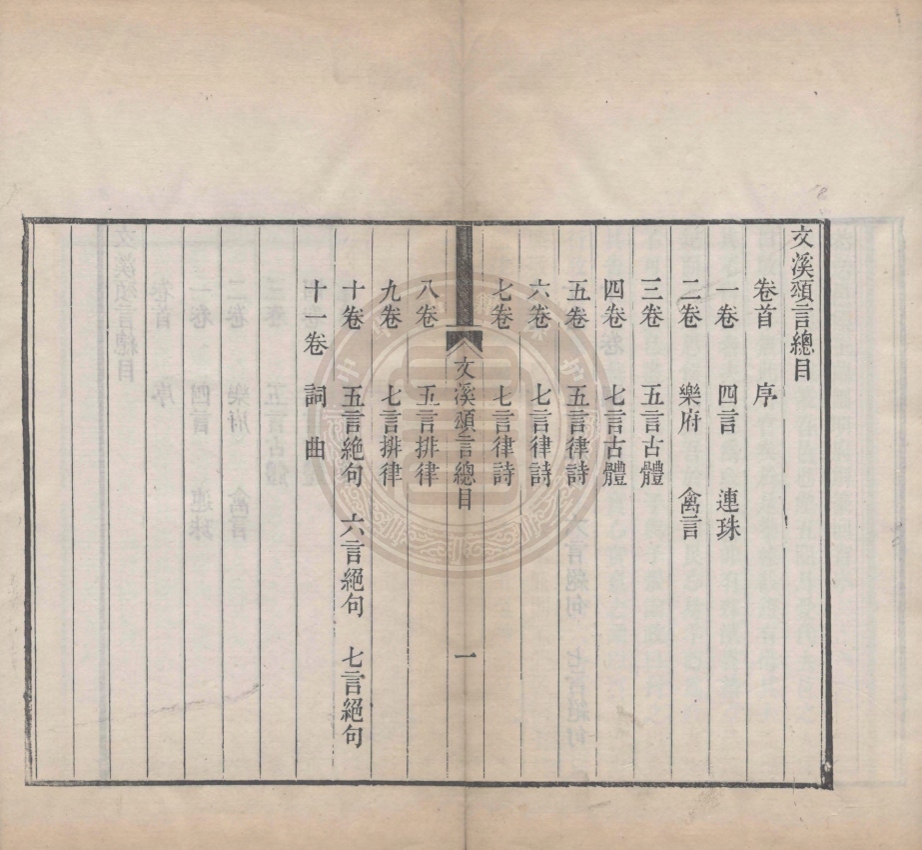 文溪頌言總目
卷首　序
一卷　四言　連珠
二卷　樂府　禽言
三卷　五言古體
四卷　七言古體
五卷　五言律詩
六卷　七言律詩
七卷　七言律詩
文溪頌言總目　一
八卷　五言排律
九卷　七言排律
十卷　五言絕句　六言絕句　七言絕句
十一卷　詞　曲